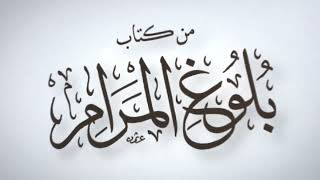 من كتاب
بُلُوغِ الْمَرَامِ